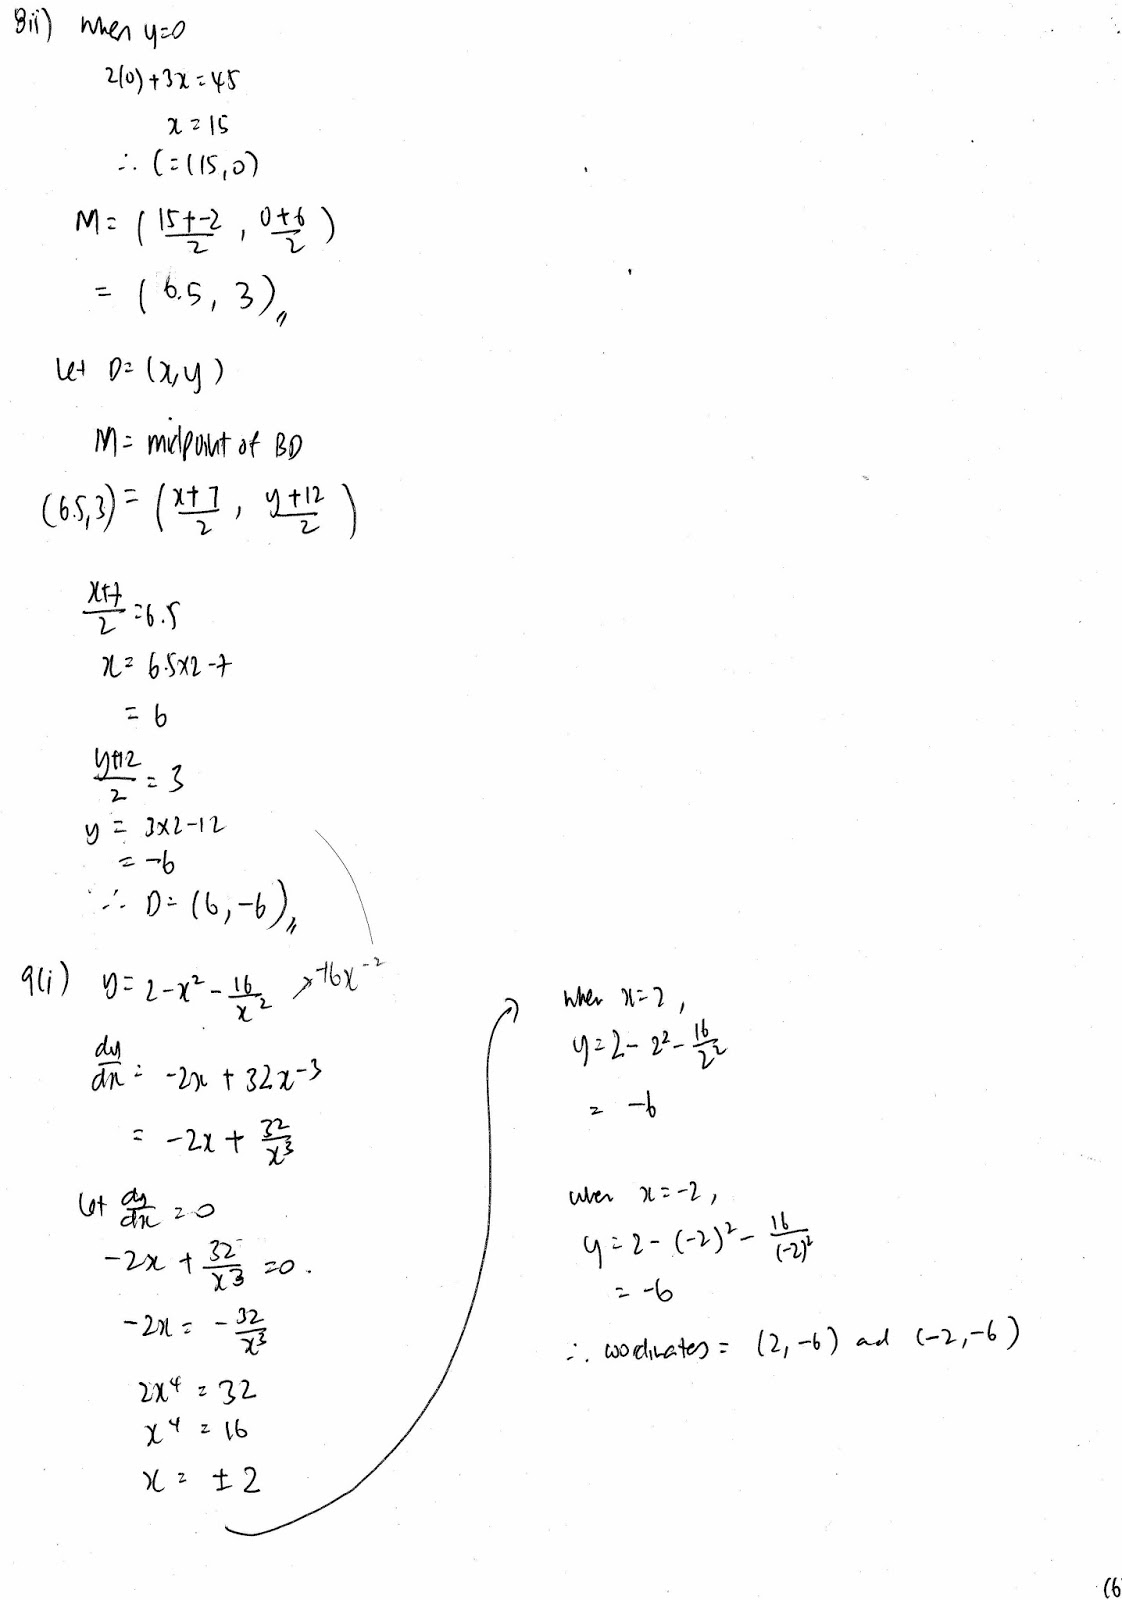 8ii) When y=0
2(0)+3x=45
x=15
∴ C=(15,0)
M= ( (15+-2)/2 , (0+6)/2 )
= (6.5, 3)〃
Let D=(x,y)
M= midpoint of BD
(6.5,3)= ( (x+7)/2 , (y+12)/2 )
(x+7)/2 =6.5
x= 6.5x2-7
= 6
(y+12)/2 = 3
y = 3x2-12
= -6
∴ D= (6,-6)〃
9(i) y= 2-x² - 16/x² ↗ -16x⁻²
dy/dx = -2x + 32x-3
= -2x + 32/x³
Let dy/dx =0
-2x + 32/x³ =0.
-2x = - 32/x³
2x⁴ = 32
x⁴ = 16
x = ±2
When x=2,
y=2- 2² - 16/2²
= -6
when x=-2,
y=2- (-2)² - 16/(-2)²
= -6
∴ coordinates = (2,-6) and (-2,-6)
(6